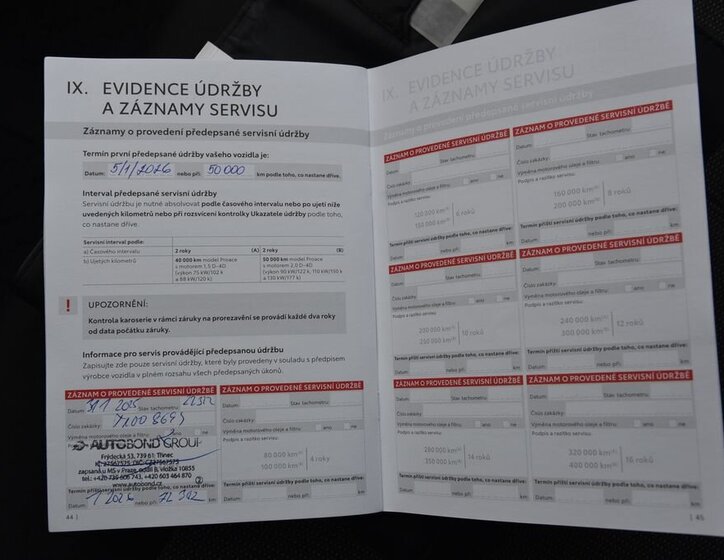 IX. EVIDENCE ÚDRŽBY
A ZÁZNAMY SERVISU
Záznamy o provedení předepsané servisní údržby
Termín první předepsané údržby vašeho vozidla je:
Datum: 5/1/2026 nebo při 50 000 km podle toho, co nastane dříve.
Interval předepsané servisní údržby
Servisní údržbu je nutné absolvovat podle časového intervalu nebo po ujetí níže
uvedených kilometrů nebo při rozsvícení kontrolky Ukazatele údržby podle toho,
co nastane dříve.
Servisní interval podle:
a) Časového intervalu 2 roky (A) 2 roky (B)
b) Ujetých kilometrů 40 000 km model Proace 50 000 km model Proace
s motorem 1,5 D-4D s motorem 2,0 D-4D
(výkon 75 kW/102 k (výkon 90 kW/122 k, 110 kW/150 k
a 88 kW/120 k) a 130 kW/177 k)
! UPOZORNĚNÍ:
Kontrola karoserie v rámci záruky na prorezavění se provádí každé dva roky
od data počátku záruky.
Informace pro servis provádějící předepsanou údržbu
Zapisujte zde pouze servisní údržbu, které byly provedeny v souladu s předpisem
výrobce vozidla v plném rozsahu všech předepsaných úkonů.
ZÁZNAM O PROVEDENÉ SERVISNÍ ÚDRŽBĚ
Datum: 2025 Stav tachometru:
Číslo zakázky:
Výměna motorového oleje a filtru:
AUTOBOND GROUP
Frýdecká 53, 739 61 Třinec
zapsaná u MS v Praze, oddíl B, vložka 10855
www.autobond.cz
Termín příští servisní údržby podle toho, co nastane dříve:
Datum: 1 2026 nebo při: km
44 |
ZÁZNAM O PROVEDENÉ SERVISNÍ ÚDRŽBĚ
Datum: Stav tachometru:
Číslo zakázky:
Výměna motorového oleje a filtru: ano ne
Podpis a razítko servisu:
80 000 km
100 000 km
4 roky
Termín příští servisní údržby podle toho, co nastane dříve:
Datum: nebo při: km
IX. EVIDENCE ÚDRŽBY
A ZÁZNAMY SERVISU
Záznamy o provedení předepsané servisní údržby
ZÁZNAM O PROVEDENÉ SERVISNÍ ÚDRŽBĚ
Datum: Stav tachometru:
Číslo zakázky:
Výměna motorového oleje a filtru: ano ne
Podpis a razítko servisu:
120 000 km
150 000 km
6 roků
Termín příští servisní údržby podle toho, co nastane dříve:
Datum: nebo při: km
ZÁZNAM O PROVEDENÉ SERVISNÍ ÚDRŽBĚ
Datum: Stav tachometru:
Číslo zakázky:
Výměna motorového oleje a filtru: ano ne
Podpis a razítko servisu:
160 000 km
200 000 km
8 roků
Termín příští servisní údržby podle toho, co nastane dříve:
Datum: nebo při: km
ZÁZNAM O PROVEDENÉ SERVISNÍ ÚDRŽBĚ
Datum: Stav tachometru:
Číslo zakázky:
Výměna motorového oleje a filtru: ano ne
Podpis a razítko servisu:
200 000 km
250 000 km
10 roků
Termín příští servisní údržby podle toho, co nastane dříve:
Datum: nebo při: km
ZÁZNAM O PROVEDENÉ SERVISNÍ ÚDRŽBĚ
Datum: Stav tachometru:
Číslo zakázky:
Výměna motorového oleje a filtru: ano ne
Podpis a razítko servisu:
240 000 km
300 000 km
12 roků
Termín příští servisní údržby podle toho, co nastane dříve:
Datum: nebo při: km
ZÁZNAM O PROVEDENÉ SERVISNÍ ÚDRŽBĚ
Datum: Stav tachometru:
Číslo zakázky:
Výměna motorového oleje a filtru: ano ne
Podpis a razítko servisu:
280 000 km
350 000 km
14 roků
Termín příští servisní údržby podle toho, co nastane dříve:
Datum: nebo při: km
ZÁZNAM O PROVEDENÉ SERVISNÍ ÚDRŽBĚ
Datum: Stav tachometru:
Číslo zakázky:
Výměna motorového oleje a filtru: ano ne
Podpis a razítko servisu:
320 000 km
400 000 km
16 roků
Termín příští servisní údržby podle toho, co nastane dříve:
Datum: nebo při: km
| 45